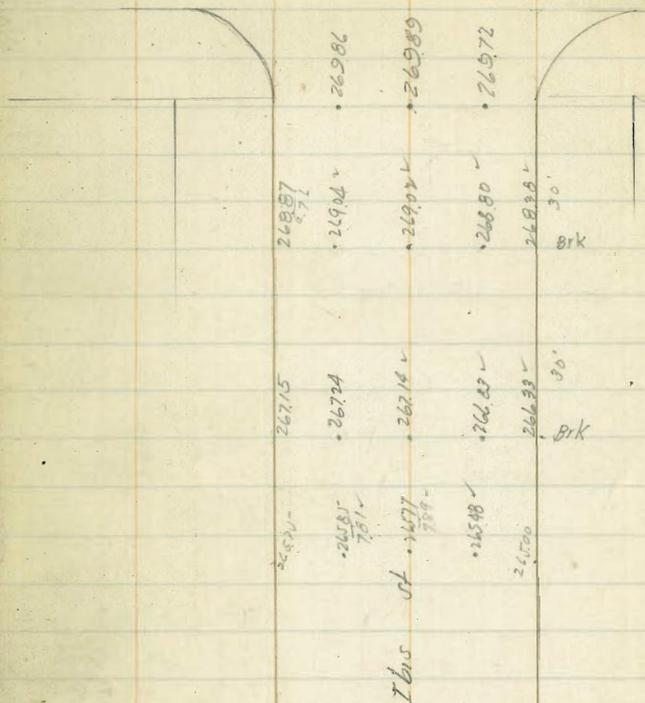 • 269.86
• 269.89
• 269.72
268.87
• 269.04 ✓
• 269.02 ✓
• 268.80 ✓
268.38 ✓
30'
Brk
267.15
• 267.24
• 267.14 ✓
• 266.83 ✓
266.33 ✓
30'
Brk
• 265.85
7.81 ✓
• 265.77
7.89 -
• 265.48 ✓
265.00
Ibis St